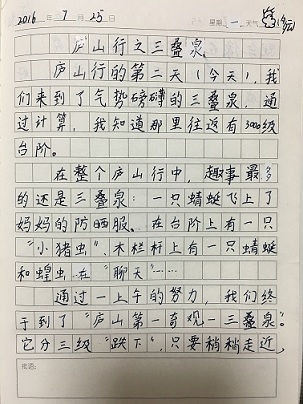 2016 年 7 月 25 日 星期 一 天气
庐山行之三叠泉
庐山行的第二天(今天),我
们来到了气势磅礴的三叠泉,通
过计算,我知道那里往返有3000级
台阶。
在整个庐山行中,趣事最多
的还是三叠泉:一只蜻蜓飞上了
妈妈的防晒服、在台阶上有一只
“小猪虫”、木栏杆上有一只蜻蜓
和蝗虫在“聊天”……
通过一上午的努力,我们终
于到了“庐山第一奇观—三叠泉”。
它分三级“跌下”,只要稍稍走近,